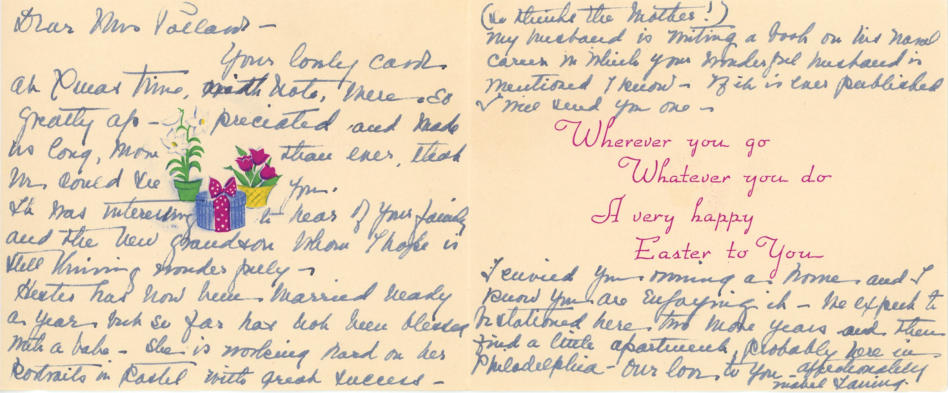 Dear Mrs Polland -
Your lovely card
at Xmas time, with note, were so
greatly ap - preciated and made
us long, more than ever, that
we could see you.
It was interesting to hear of your family
and the new grandson whom I hope is
still thriving wonderfully -
Hester has now been married nearly
a year but so far has not been blessed
with a babe - She is working hard on her
Portraits in Pastel with great success -
(So thinks the Mother!)
My husband is writing a book on his naval
career in which your wonderful husband is
mentioned I know - If it is ever published
I will send you one -
Wherever you go
Whatever you do
A very happy
Easter to You
I envied you owning a home and I
know you are enjoying it - We expect to
be stationed here two more years and then
find a little apartment, probably here in
Philadelphia - Our love to you - affectionately
Mabel